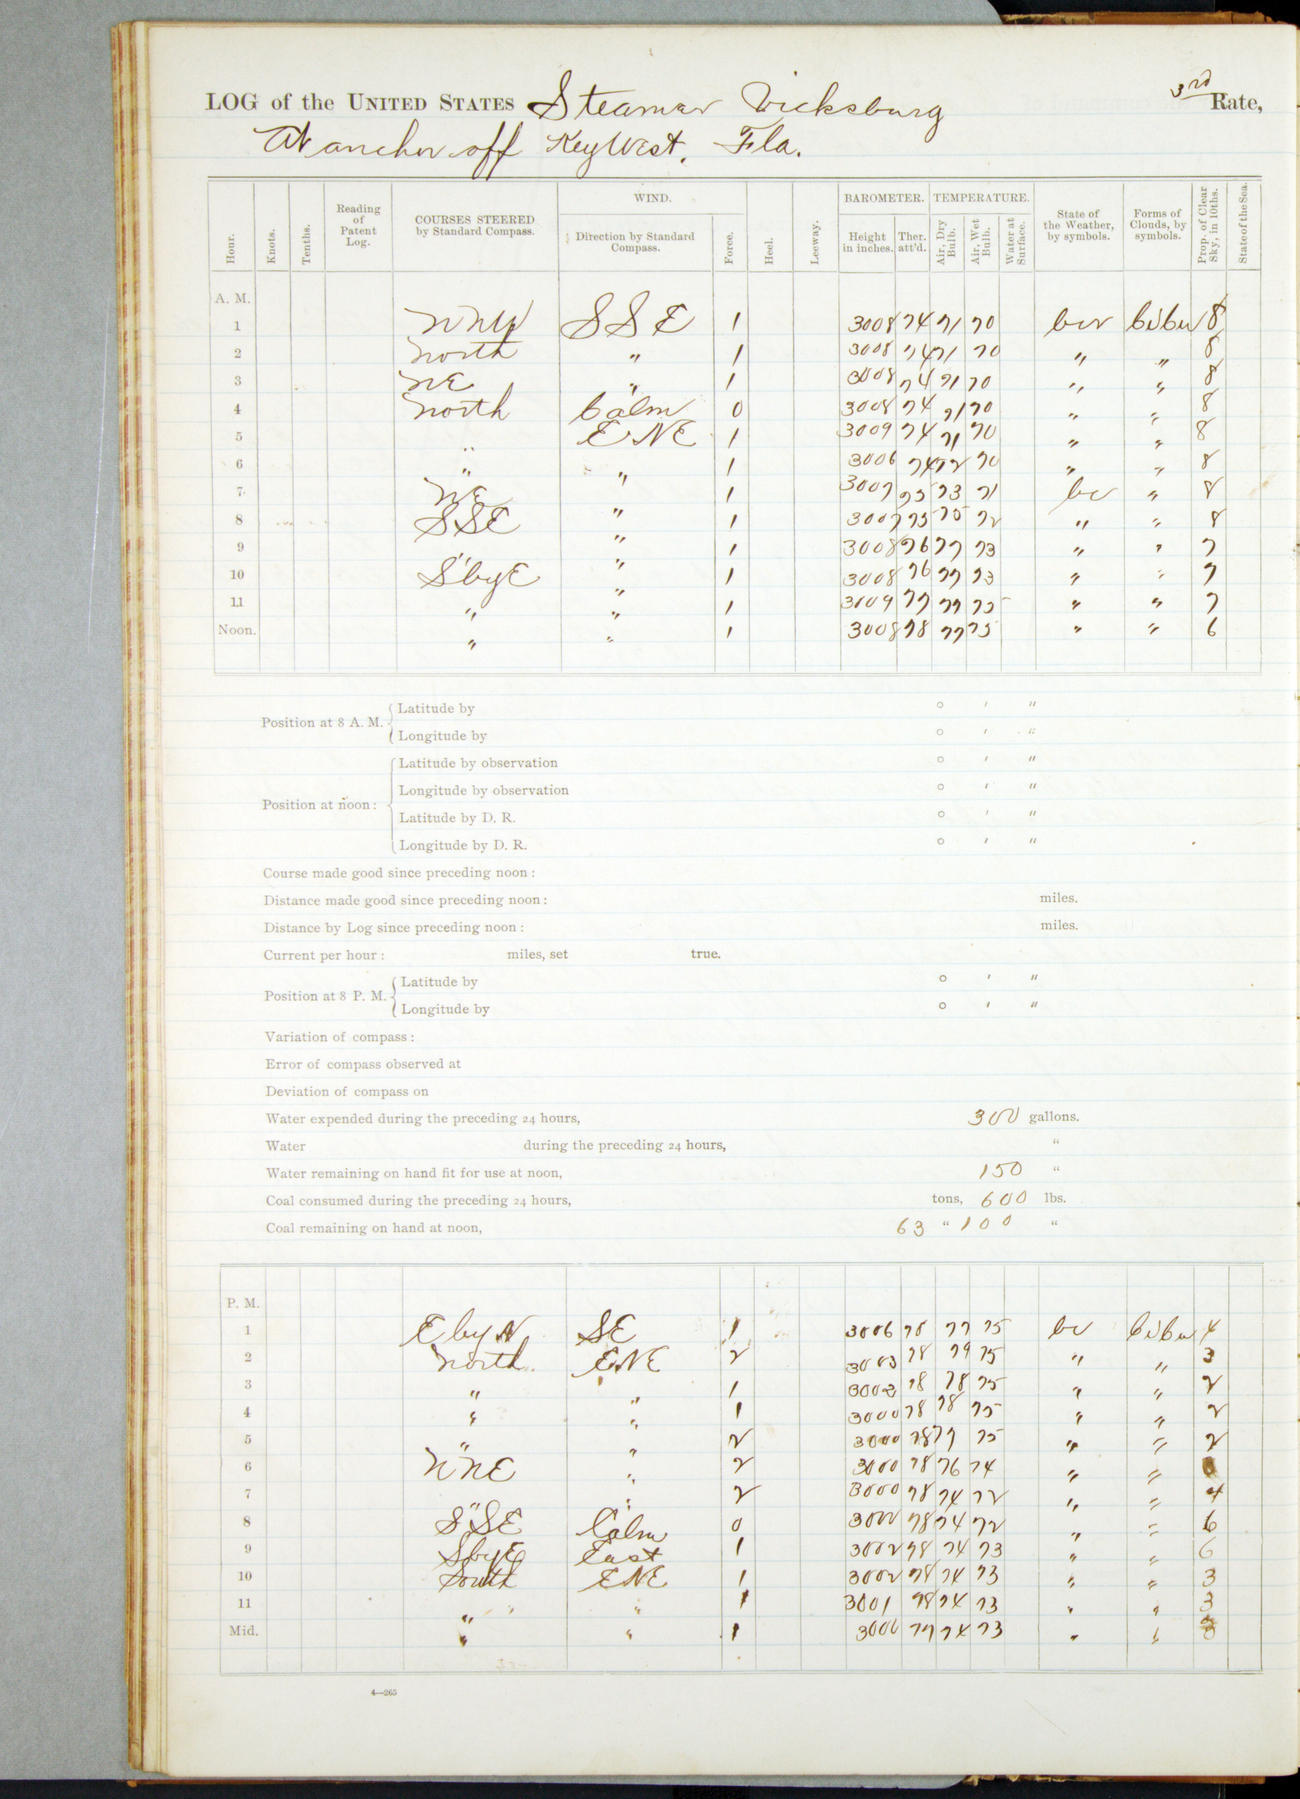 LOG of the UNITED STATES Steamer Vicksburg 3rd Rate,
At anchor off Key West, Fla.
Hour. Knots. Tenths. Reading of Patent Log. COURSES STEERED by Standard Compass. WIND. Direction by Standard Compass. Force. Heel. Leeway. BAROMETER. Height in inches. Ther. att'd. TEMPERATURE. Air, Dry Bulb. Air, Wet Bulb. Water at Surface. State of the Weather, by symbols. Forms of Clouds, by symbols. Prop. of Clear Sky, in 10ths. State of the Sea.
A. M.
1 NNW SSE 1 3008 74 71 70 bcv CiCu 8
2 North " 1 3008 74 71 70 " " 8
3 NE " 1 3008 74 71 70 " " 8
4 North Calm 0 3008 74 71 70 " " 8
5 " ENE 1 3009 74 71 70 " " 8
6 " " 1 3006 74 72 70 " " 8
7 NE " 1 3007 75 73 71 bc " 8
8 SSE " 1 3007 75 75 72 " " 8
9 " " 1 3008 76 77 73 " " 7
10 S'byE " 1 3008 76 77 73 " " 7
11 " " 1 3009 77 77 75 " " 7
Noon. " " 1 3008 78 77 75 " " 6
Position at 8 A. M. Latitude by ° ′ ″
Longitude by ° ′ ″
Position at noon: Latitude by observation ° ′ ″
Longitude by observation ° ′ ″
Latitude by D. R. ° ′ ″
Longitude by D. R. ° ′ ″
Course made good since preceding noon:
Distance made good since preceding noon: miles.
Distance by Log since preceding noon: miles.
Current per hour: miles, set true.
Position at 8 P. M. Latitude by ° ′ ″
Longitude by ° ′ ″
Variation of compass:
Error of compass observed at
Deviation of compass on
Water expended during the preceding 24 hours, 300 gallons.
Water during the preceding 24 hours, "
Water remaining on hand fit for use at noon, 150 "
Coal consumed during the preceding 24 hours, tons, 600 lbs.
Coal remaining on hand at noon, 63 " 100 "
P. M.
1 E by N SE 1 3006 78 77 75 bc CiCu 4
2 North ENE 2 3003 78 79 75 " " 3
3 " " 1 3002 78 78 75 " " 2
4 " " 1 3000 78 78 75 " " 2
5 " " 2 3000 78 77 75 " " 2
6 NNE " 2 3000 78 76 74 " "
7 " " 2 3000 78 74 72 " " 4
8 SSE Calm 0 3002 78 74 72 " " 6
9 SbyE East 1 3002 78 74 73 " " 6
10 South ENE 1 3002 78 74 73 " " 3
11 " " 1 3001 78 74 73 " " 3
Mid. " " 1 3000 77 74 73 " " 3
4—265